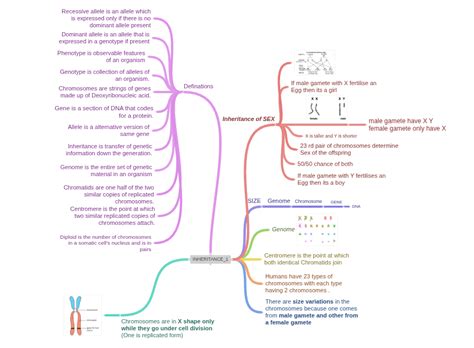 Recessive allele is an allele which
is expressed only if there is no
dominant allele present
Dominant allele is an allele that is
expressed in a genotype if present
Phenotype is observable features
of an organism
Genotype is collection of alleles of
an organism.
Chromosomes are strings of genes
made up of Deoxyribonucleic acid.
Gene is a section of DNA that codes
for a protein.
Allele is a alternative version of
same gene
Inheritance is transfer of genetic
information down the generation.
Genome is the entire set of genetic
material in an organism
Chromatids are one half of the two
similar copies of replicated
chromosomes.
Centromere is the point at which
two similar replicated copies of
chromosomes attach.
Diploid is the number of chromosomes
in a somatic cell's nucleus and is in
pairs
Definations
INHERITANCE_1
Chromosomes are in X shape only
while they go under cell division
(One is replicated form)
Inheritance of SEX
If male gamete with X fertilise an
Egg then its a girl
X X
X Y
male gamete have X Y
female gamete only have X
X is taller and Y is shorter
23 rd pair of chromosomes determine
Sex of the offspring
50/50 chance of both
If male gamete with Y fertilises an
Egg then its a boy
SIZE
Genome
Chromosome
GENE
DNA
Genome
Centromere is the point at which
both identical Chromatids join
Humans have 23 types of
chromosomes with each type
having 2 chromosomes .
There are size variations in the
chromosomes because one comes
from male gamete and other from
a female gamete